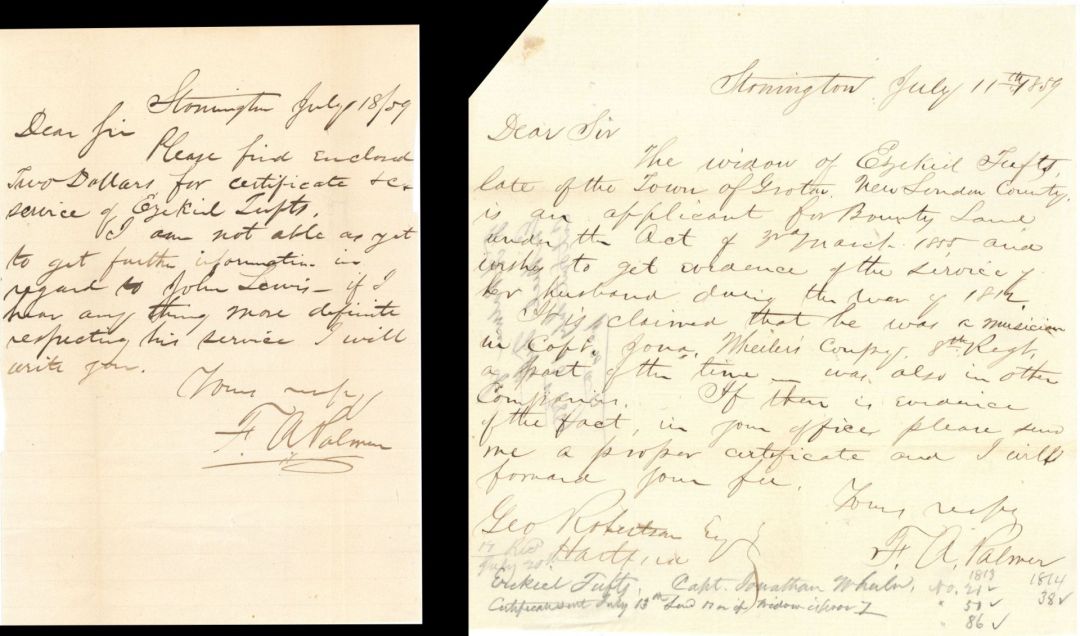 Stonington July 18/59
Dear Sir
Please find enclosed
Two Dollars for certificate &c.
service of Ezekiel Tufts.
I am not able as yet
to get further information in
regard to John Lewis - if I
hear any thing more definite
respecting his service I will
write you.
Yours respy
F. A. Palmer
Stonington July 11th 1859
Dear Sir
The widow of Ezekiel Tufts,
late of the Town of Groton New London County,
is an applicant for Bounty Land
under the Act of 3rd March 1855 and
wishes to get evidence of the service of
her husband during the war of 1812.
It is claimed that he was a musician
in Capt. Jona. Wheeler's Compy. 8th Regt.
a part of the time - was also in other
Companies. If there is evidence
of the fact, in your office please send
me a proper certificate and I will
forward your fee.
Yours respy
F. A. Palmer
Geo Robertson Esq
Hartford
July 20th
Ezekiel Tufts, Capt. Jonathan Wheeler, No. 21 ✓
1813
1814
38 ✓
Certificate sent July 13th
" 51 ✓
" 86 ✓